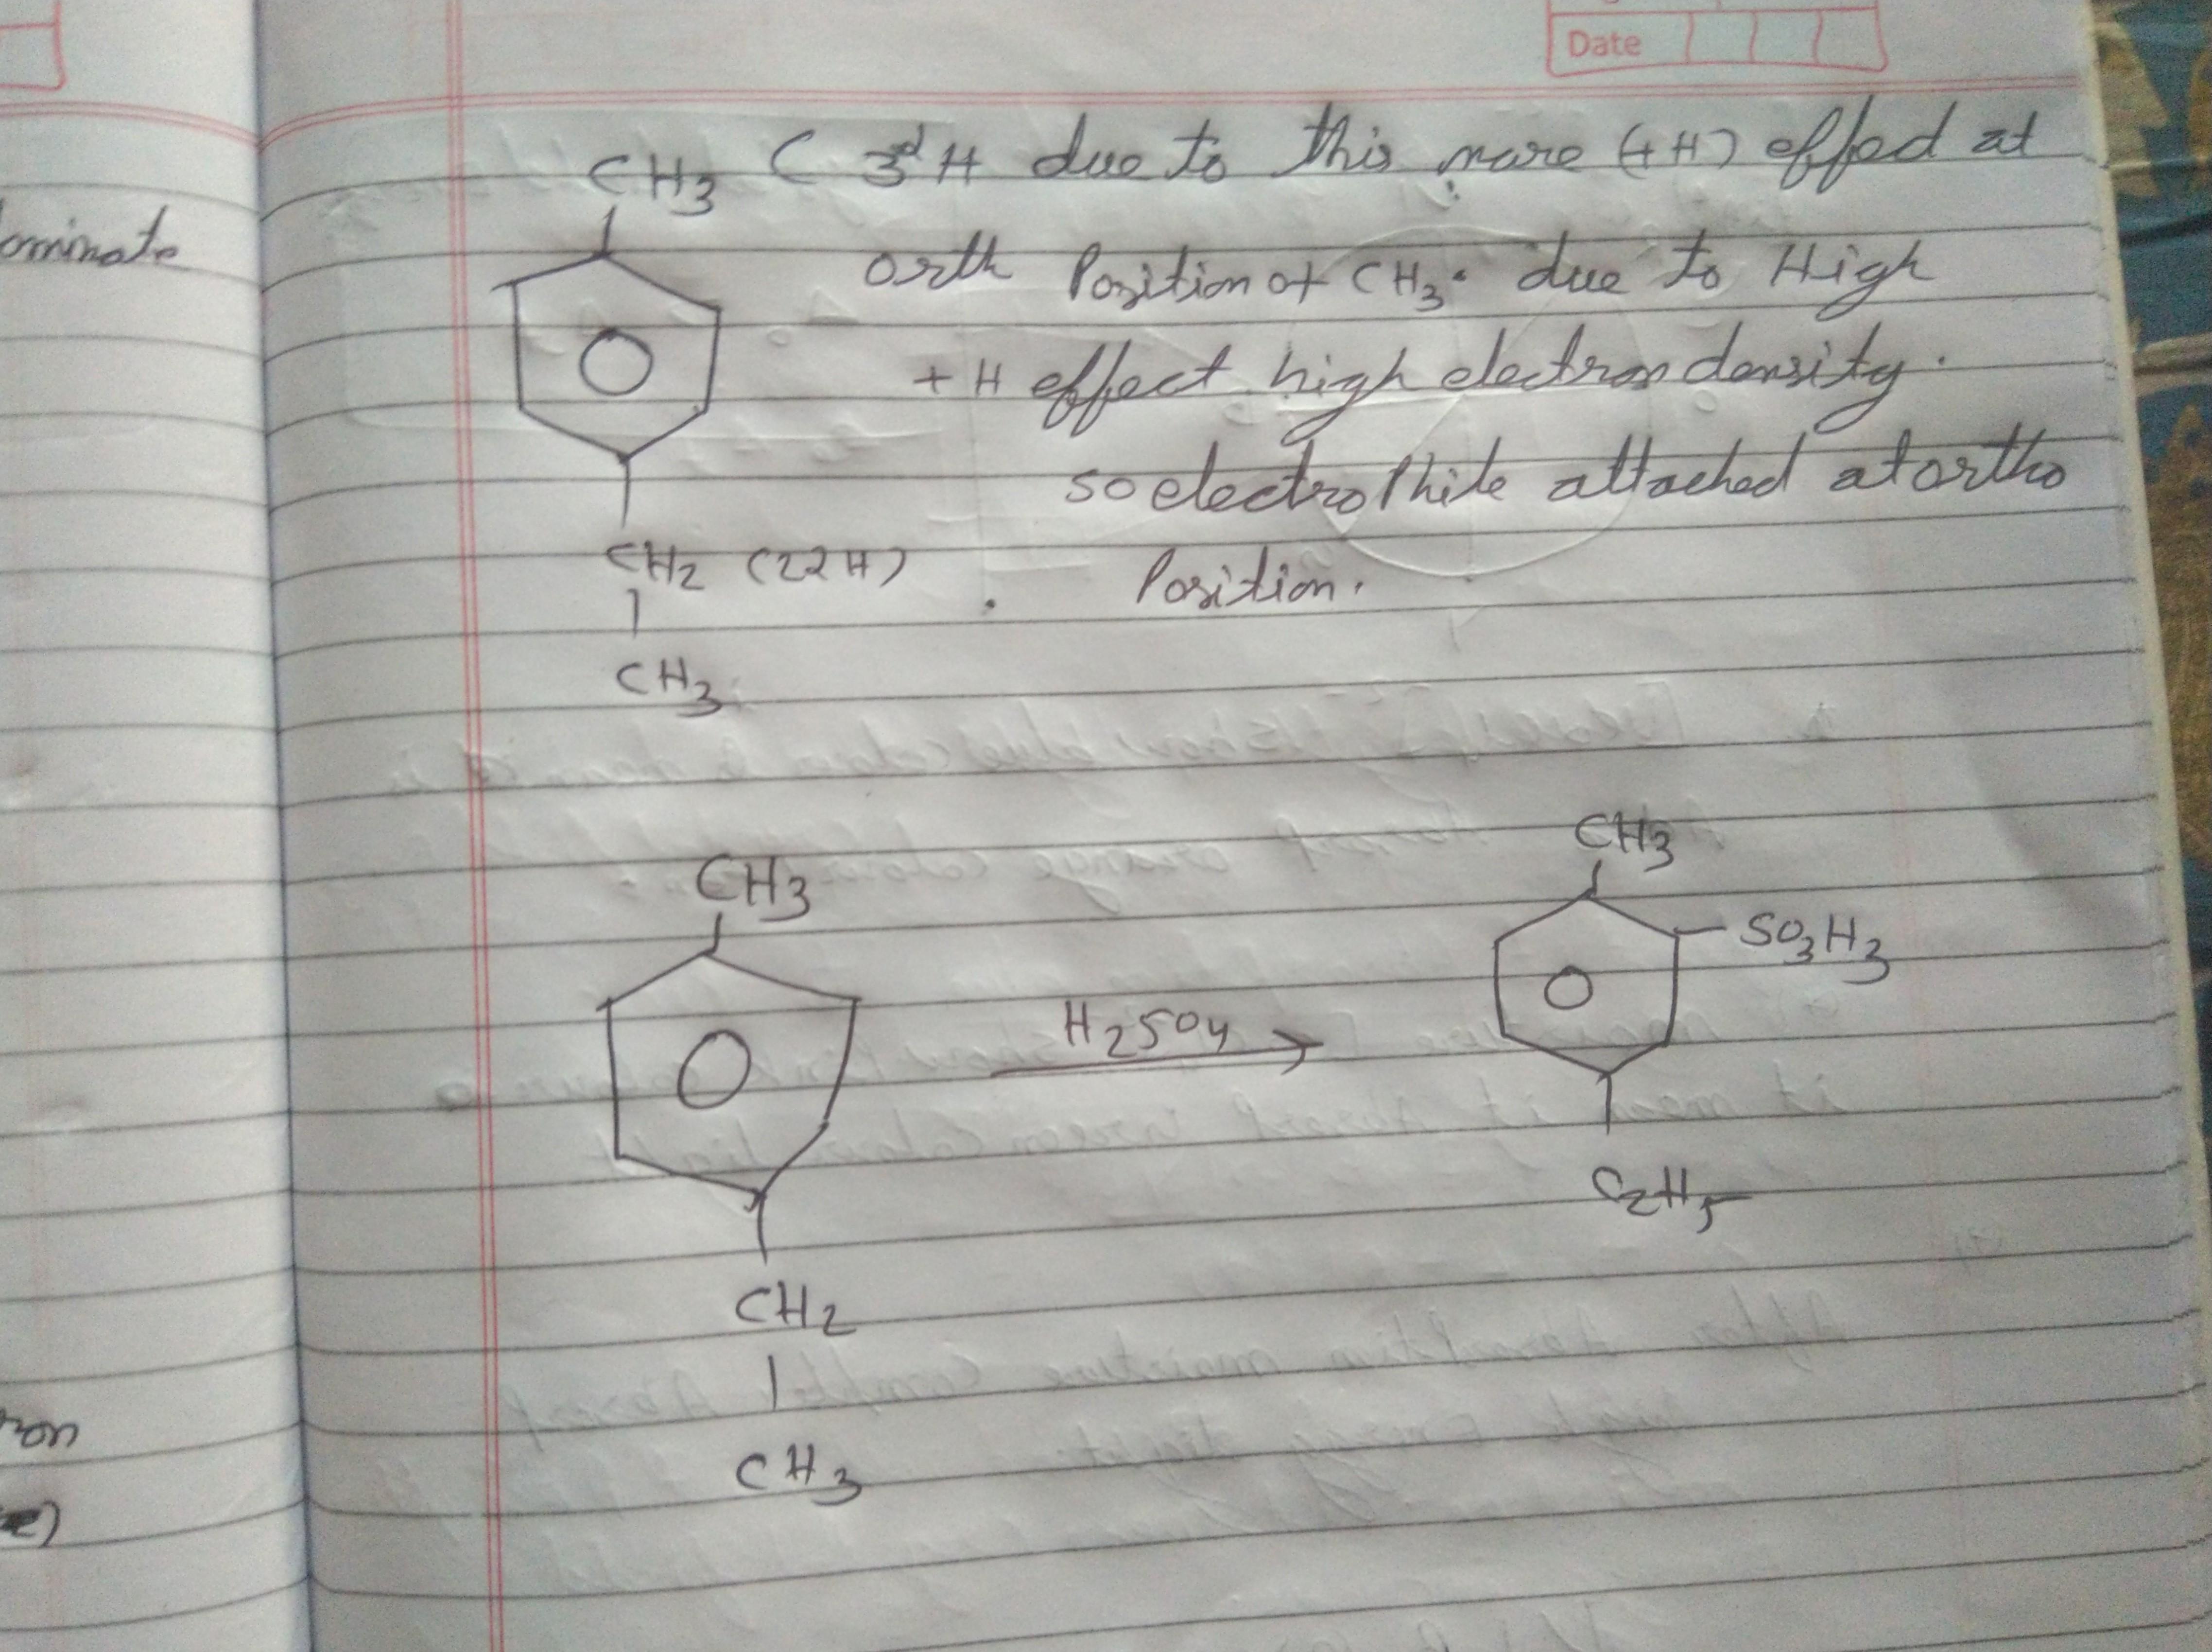 Date
ominate
CH3 ( 3αH due to this more (+H) effed at
orth Position of CH3. due to High
+ H effect high electron density.
so electrophile attached at ortho
CH2 (2αH)
Position.
CH3
CH3
CH3
SO3H3
H2SO4
C2H5
CH2
CH3
ron